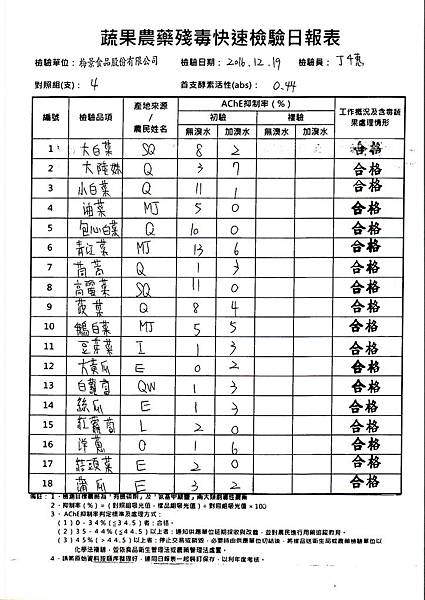 蔬果農藥殘毒快速檢驗日報表
檢驗單位: 梅景食品股份有限公司 檢驗日期: 2016.12.19 檢驗員:
對照組(支): 4 首支酵素活性(abs): 0.44
編號 檢驗品項 產地來源/農民姓名 AChE抑制率(%) 工作概況及含毒蔬果處理情形
初驗 複驗
無溴水 加溴水 無溴水 加溴水
1 大白菜 SQ 8 2 合格
2 大陸妹 Q 3 7 合格
3 小白菜 Q 11 1 合格
4 油菜 MJ 5 0 合格
5 包心白菜 Q 10 0 合格
6 青江菜 MJ 13 6 合格
7 茼蒿 Q 1 3 合格
8 高麗菜 SQ 11 0 合格
9 菠菜 Q 8 4 合格
10 鵝白菜 MJ 5 5 合格
11 豆芽菜 I 1 3 合格
12 大黃瓜 E 0 2 合格
13 白蘿蔔 QW 1 3 合格
14 絲瓜 E 1 3 合格
15 紅蘿蔔 L 2 0 合格
16 洋蔥 O 1 6 合格
17 結頭菜 E 2 0 合格
18 蒲瓜 E 3 2 合格
備註: 1、檢測目標農藥為「有機磷劑」及「氨基甲酸鹽」兩大類劇毒性農藥
2、抑制率(%)=(對照組吸光值-樣品組吸光值)÷對照組吸光值×100
3、AChE抑制率判定標準及處理方式:
(1)0-34%(≦34.5)者:合格。
(2)35-44%(≦44.5)以上者:通知供應單位延期採收與改善,並對農民進行用藥追蹤教育。
(3)45%(>44.5)以上者:停止交易或銷毀,必要時由供應單位切結後,將樣品送衛生局或農藥檢驗單位以
化學法複驗,並依食品衛生管理法或農藥管理法處置。
4、該業原始資料按順序整理好,連同日報表一起裝訂保存,以利年度考核。